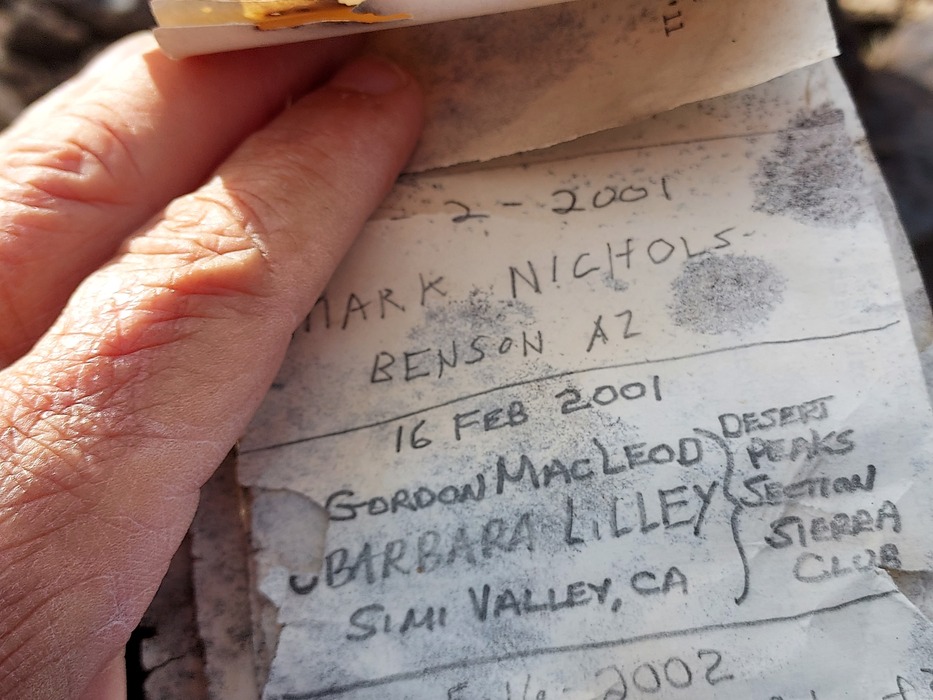 2-2001
MARK NICHOLS
BENSON AZ
16 FEB 2001
GORDON MACLEOD
BARBARA LILLEY
SIMI VALLEY, CA
DESERT
PEAKS
SECTION
SIERRA
CLUB
2002